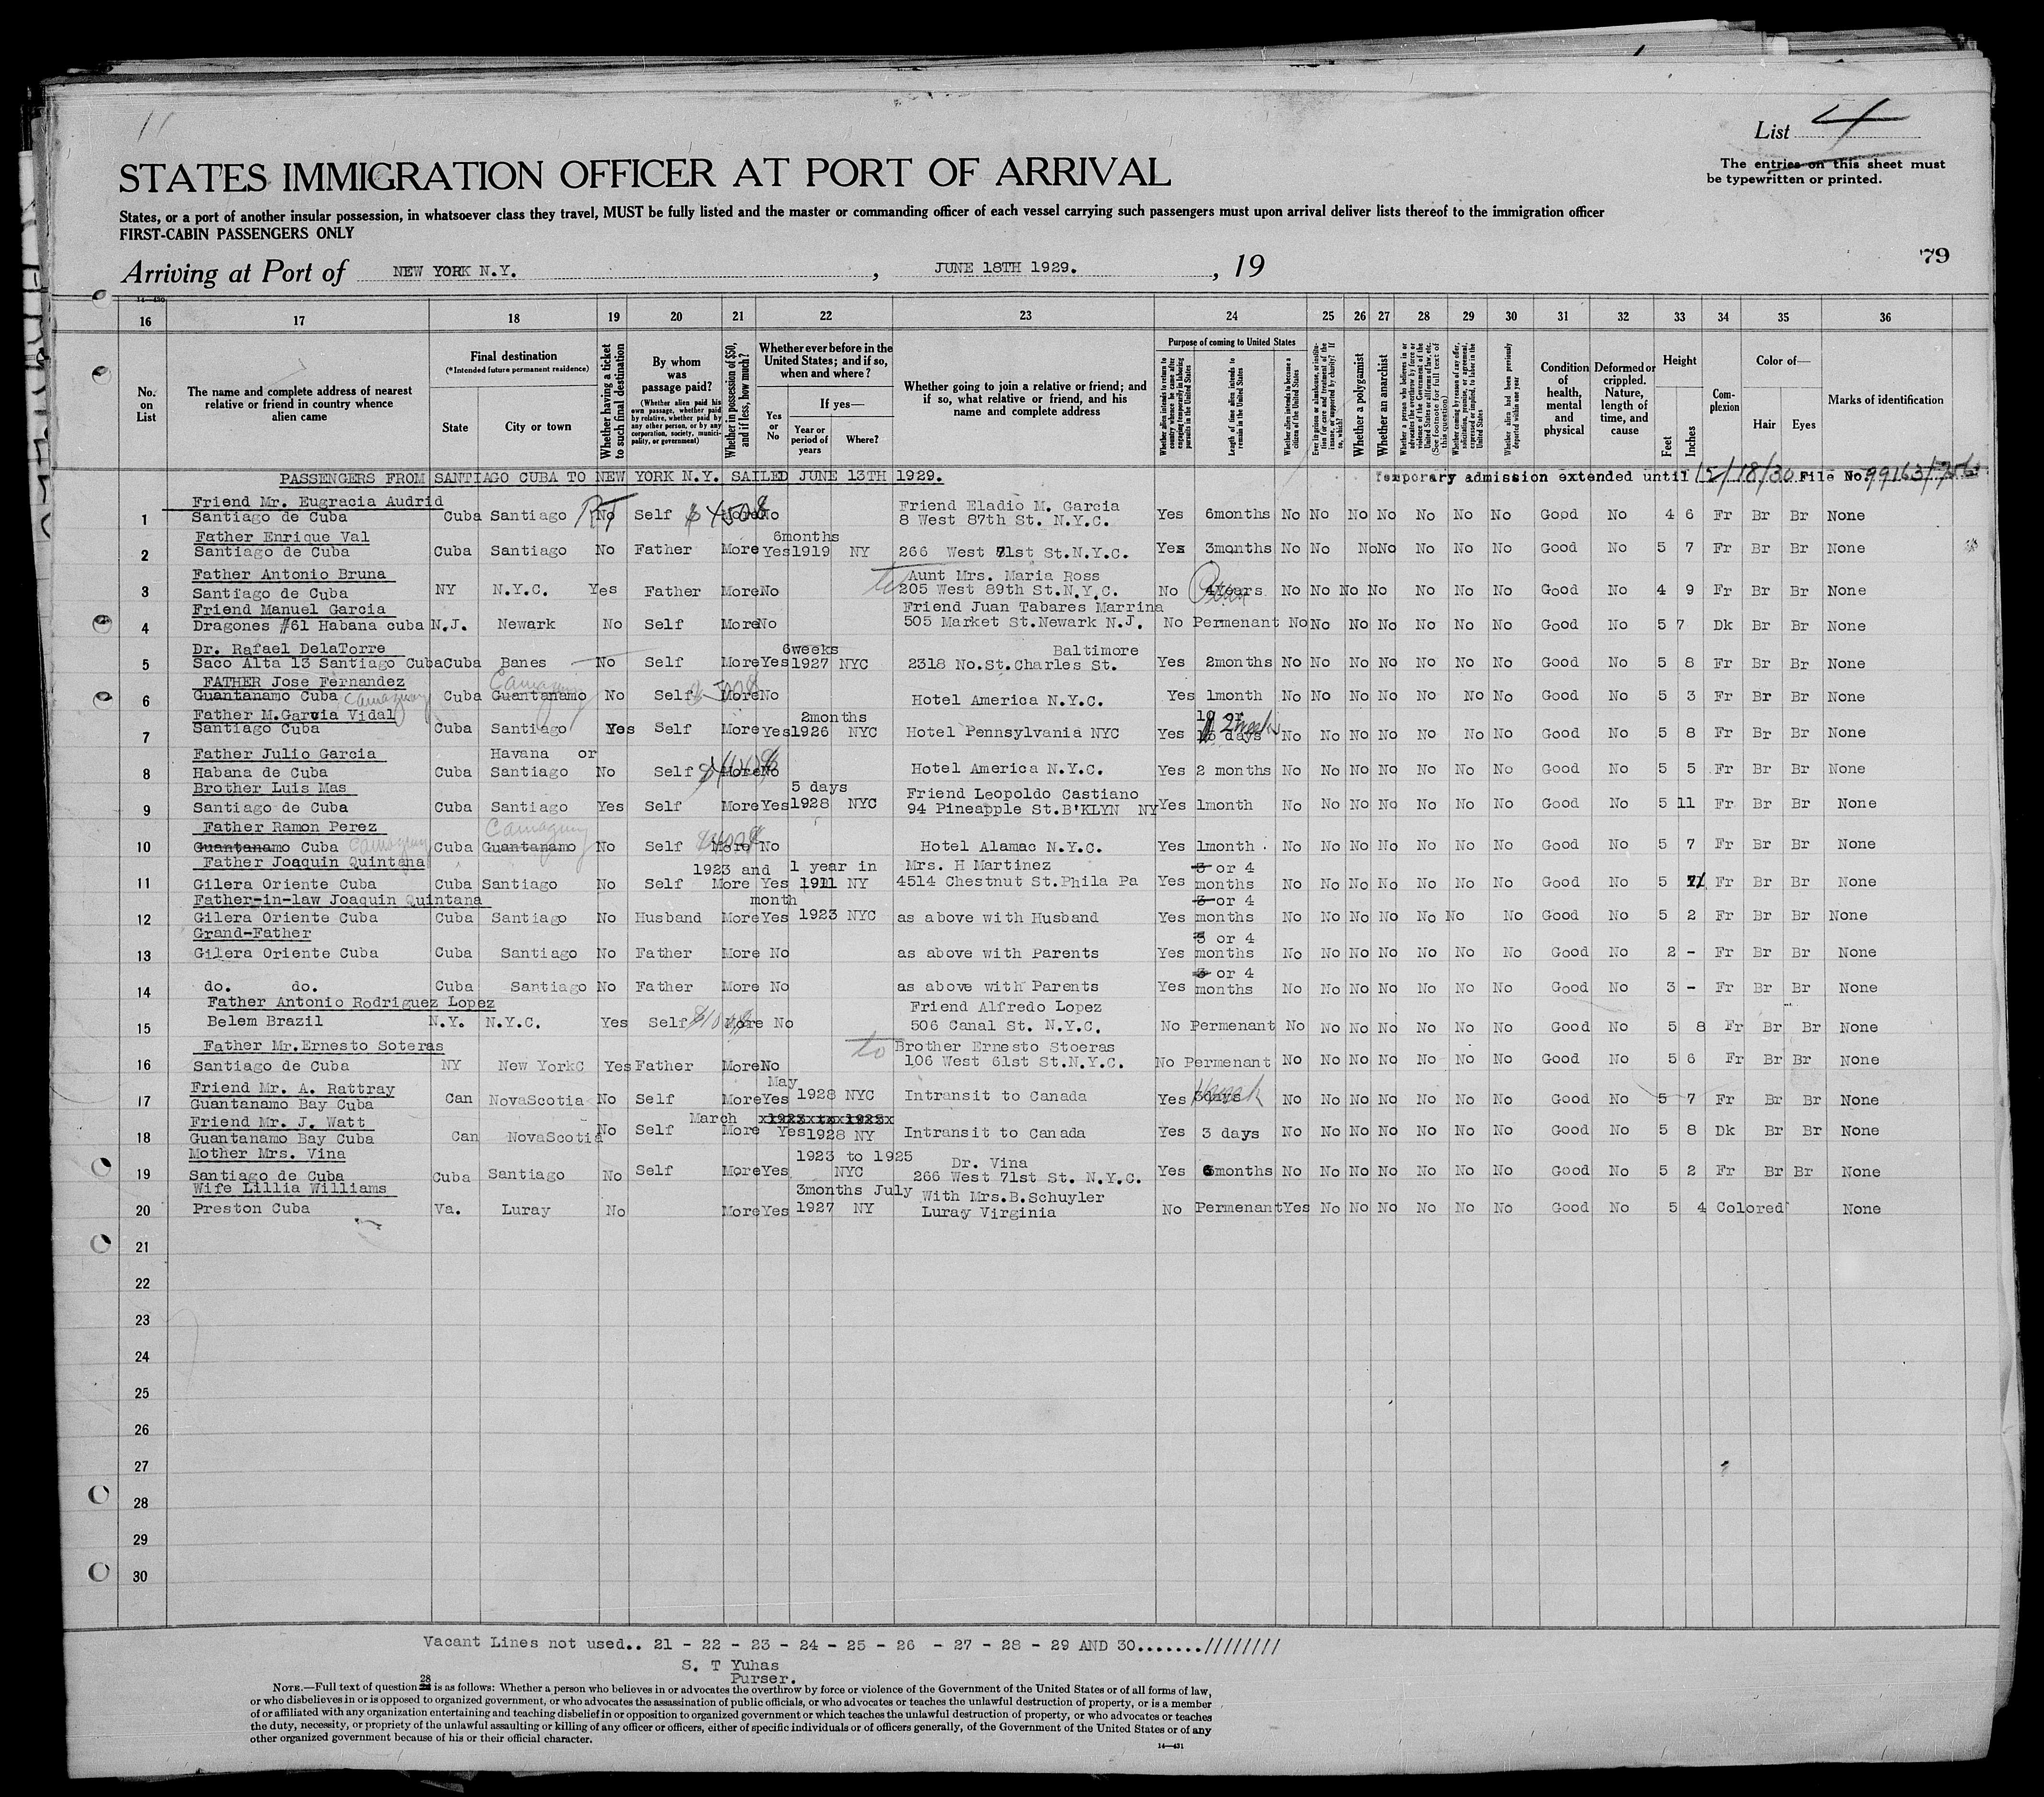 List 4
The entries on this sheet must
be typewritten or printed.
STATES IMMIGRATION OFFICER AT PORT OF ARRIVAL
States, or a port of another insular possession, in whatsoever class they travel, MUST be fully listed and the master or commanding officer of each vessel carrying such passengers must upon arrival deliver lists thereof to the immigration officer
FIRST-CABIN PASSENGERS ONLY
79
Arriving at Port of NEW YORK N.Y. , JUNE 18TH 1929. , 19
16 17 18 19 20 21 22 23 24 25 26 27 28 29 30 31 32 33 34 35 36
No. on List
The name and complete address of nearest relative or friend in country whence alien came
Final destination (*Intended future permanent residence)
State
City or town
Whether having a ticket to such final destination
By whom was passage paid? (Whether alien paid his own passage, whether paid by relative, whether paid by any other person, or by any corporation, society, municipality, or government)
Whether in possession of $50, and if less, how much?
Whether ever before in the United States; and if so, when and where?
Yes or No
If yes—
Year or period of years
Where?
Whether going to join a relative or friend; and if so, what relative or friend, and his name and complete address
Purpose of coming to United States
Whether alien intends to return to country whence he came after engaging temporarily in laboring pursuits in the United States
Length of time alien intends to remain in the United States
Whether alien intends to become a citizen of the United States
Whether a polygamist
Whether an anarchist
Whether alien had been previously deported within one year
Condition of health, mental and physical
Deformed or crippled. Nature, length of time, and cause
Height
Feet
Inches
Complexion
Color of—
Hair
Eyes
Marks of identification
PASSENGERS FROM SANTIAGO CUBA TO NEW YORK N.Y. SAILED JUNE 13TH 1929. Temporary admission extended until File No.
Friend Mr. Eugracia Audrid Friend Eladio M. Garcia
1 Santiago de Cuba Cuba Santiago No Self More No 8 West 87th St. N.Y.C. Yes 6months No No No No No No No Good No 4 6 Fr Br Br None
Father Enrique Val 6months
2 Santiago de Cuba Cuba Santiago No Father More Yes 1919 NY 266 West 71st St.N.Y.C. Yes 3months No No No No No No No Good No 5 7 Fr Br Br None
Father Antonio Bruna Aunt Mrs. Maria Ross
3 Santiago de Cuba NY N.Y.C. Yes Father More No to 205 West 89th St.N.Y.C. No Years No No No No No No No Good No 4 9 Fr Br Br None
Friend Manuel Garcia Friend Juan Tabares Marrina
4 Dragones #61 Habana cuba N.J. Newark No Self More No 505 Market St.Newark N.J. No Permenant No No No No No No No Good No 5 7 Dk Br Br None
Dr. Rafael DelaTorre 6weeks Baltimore
5 Saco Alta 13 Santiago Cuba Cuba Banes No Self More Yes 1927 NYC 2318 No.St.Charles St. Yes 2months No No No No No No No Good No 5 8 Fr Br Br None
FATHER Jose Fernandez Camaguey
6 Guantanamo Cuba Camaguey Cuba Guantanamo No Self More No Hotel America N.Y.C. Yes 1month No No No No No No No Good No 5 3 Fr Br Br None
Father M.Garcia Vidal 2months 10 or
7 Santiago Cuba Cuba Santiago Yes Self More Yes 1926 NYC Hotel Pennsylvania NYC Yes days No No No No No No No Good No 5 8 Fr Br Br None
Father Julio Garcia Havana or
8 Habana de Cuba Cuba Santiago No Self More No Hotel America N.Y.C. Yes 2 months No No No No No No No Good No 5 5 Fr Br Br None
Brother Luis Mas 5 days Friend Leopoldo Castiano
9 Santiago de Cuba Cuba Santiago Yes Self More Yes 1928 NYC 94 Pineapple St.B'KLYN NY Yes 1month No No No No No No No Good No 5 11 Fr Br Br None
Father Ramon Perez Camaguey
10 Guantanamo Cuba Camaguey Cuba Guantanamo No Self More No Hotel Alamac N.Y.C. Yes 1month No No No No No No No Good No 5 7 Fr Br Br None
Father Joaquin Quintana 1923 and 1 year in Mrs. H Martinez 3 or 4
11 Gilera Oriente Cuba Cuba Santiago No Self More Yes 1911 NY 4514 Chestnut St.Phila Pa Yes months No No No No No No No Good No 5 Fr Br Br None
Father-in-law Joaquin Quintana month 3 or 4
12 Gilera Oriente Cuba Cuba Santiago No Husband More Yes 1923 NYC as above with Husband Yes months No No No No No No No Good No 5 2 Fr Br Br None
Grand-Father 3 or 4
13 Gilera Oriente Cuba Cuba Santiago No Father More No as above with Parents Yes months No No No No No No No Good No 2 - Fr Br Br None
3 or 4
14 do. do. Cuba Santiago No Father More No as above with Parents Yes months No No No No No No No Good No 3 - Fr Br Br None
Father Antonio Rodriguez Lopez Friend Alfredo Lopez
15 Belem Brazil N.Y. N.Y.C. Yes Self More No 506 Canal St. N.Y.C. No Permenant No No No No No No No Good No 5 8 Fr Br Br None
Father Mr.Ernesto Soteras Brother Ernesto Stoeras
16 Santiago de Cuba NY New YorkC Yes Father More No to 106 West 61st St.N.Y.C. No Permenant No No No No No No No Good No 5 6 Fr Br Br None
Friend Mr. A. Rattray May
17 Guantanamo Bay Cuba Can NovaScotia No Self More Yes 1928 NYC Intransit to Canada Yes 3days No No No No No No No Good No 5 7 Fr Br Br None
Friend Mr. J. Watt March x1923xtox1925x
18 Guantanamo Bay Cuba Can NovaScotia No Self More Yes 1928 NY Intransit to Canada Yes 3 days No No No No No No No Good No 5 8 Dk Br Br None
Mother Mrs. Vina 1923 to 1925 Dr. Vina
19 Santiago de Cuba Cuba Santiago No Self More Yes NYC 266 West 71st St. N.Y.C. Yes 6months No No No No No No No Good No 5 2 Fr Br Br None
Wife Lillia Williams 3months July With Mrs.B.Schuyler
20 Preston Cuba Va. Luray No More Yes 1927 NY Luray Virginia No Permenant Yes No No No No No No Good No 5 4 Colored None
21
22
23
24
25
26
27
28
29
30
Vacant Lines not used.. 21 - 22 - 23 - 24 - 25 - 26 - 27 - 28 - 29 AND 30.......//////////
S. T Yuhas
Purser.
NOTE.—Full text of question 28 is as follows: Whether a person who believes in or advocates the overthrow by force or violence of the Government of the United States or of all forms of law,
or who disbelieves in or is opposed to organized government, or who advocates the assassination of public officials, or who advocates or teaches the unlawful destruction of property, or is a member
of or affiliated with any organization entertaining and teaching disbelief in or opposition to organized government or which teaches the unlawful destruction of property, or who advocates or teaches
the duty, necessity, or propriety of the unlawful assaulting or killing of any officer or officers, either of specific individuals or of officers generally, of the Government of the United States or of any
other organized government because of his or their official character.
14—431